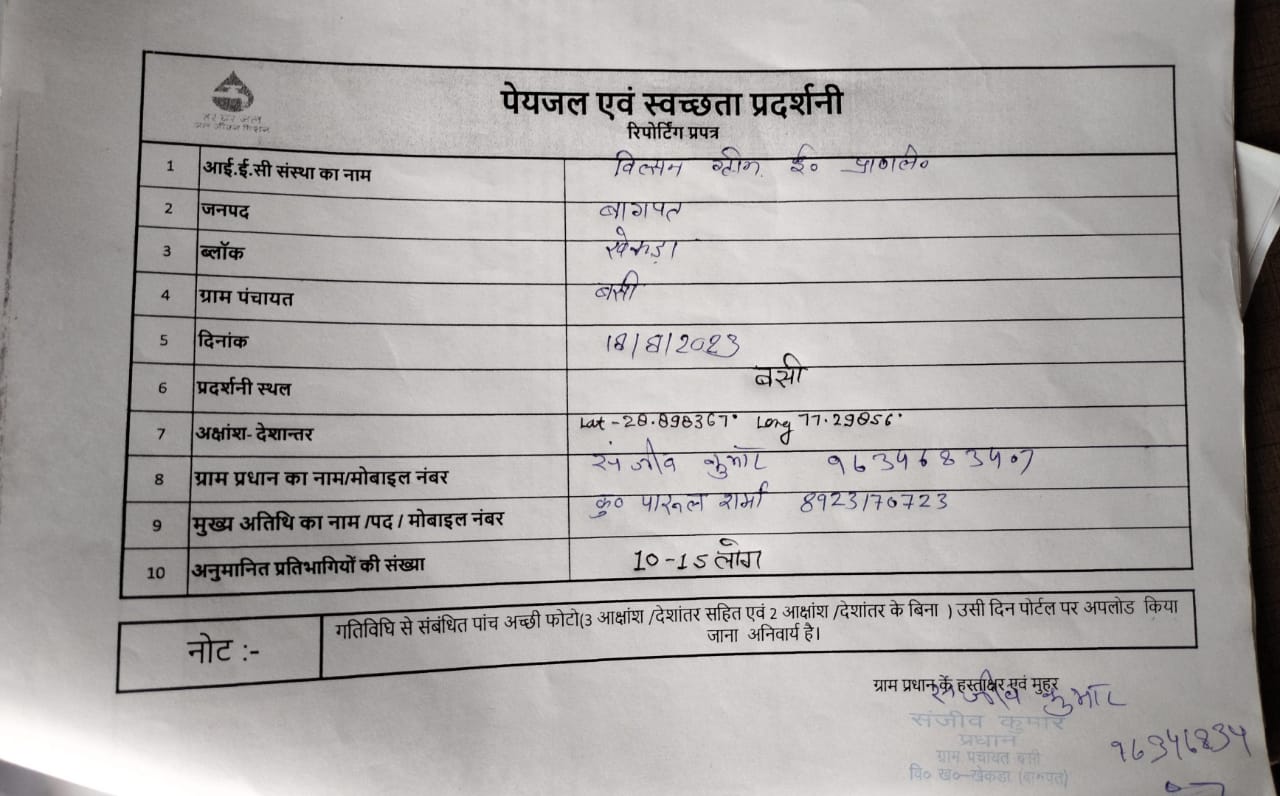 हर घर जल
जल जीवन मिशन
पेयजल एवं स्वच्छता प्रदर्शनी
रिपोर्टिंग प्रपत्र
1 आई.ई.सी संस्था का नाम विल्सन ई० प्रा०लि०
2 जनपद बागपत
3 ब्लॉक खेकड़ा
4 ग्राम पंचायत बसी
5 दिनांक 18/8/2023
6 प्रदर्शनी स्थल बसी
7 अक्षांश- देशान्तर Lat - 28.898367° Long 77.29856°
8 ग्राम प्रधान का नाम/मोबाइल नंबर संजीव कुमार 9634683407
9 मुख्य अतिथि का नाम /पद / मोबाइल नंबर कु० पारूल शर्मा 8923170723
10 अनुमानित प्रतिभागियों की संख्या 10-15 लोग
नोट :- गतिविधि से संबंधित पांच अच्छी फोटो(3 आक्षांश /देशांतर सहित एवं 2 आक्षांश /देशांतर के बिना ) उसी दिन पोर्टल पर अपलोड किया
जाना अनिवार्य है।
ग्राम प्रधान के हस्ताक्षर एवं मुहर
संजीव कुमार
संजीव कुमार
प्रधान
ग्राम पंचायत बसी
वि० ख०-खेकडा (बागपत)
96346834
07